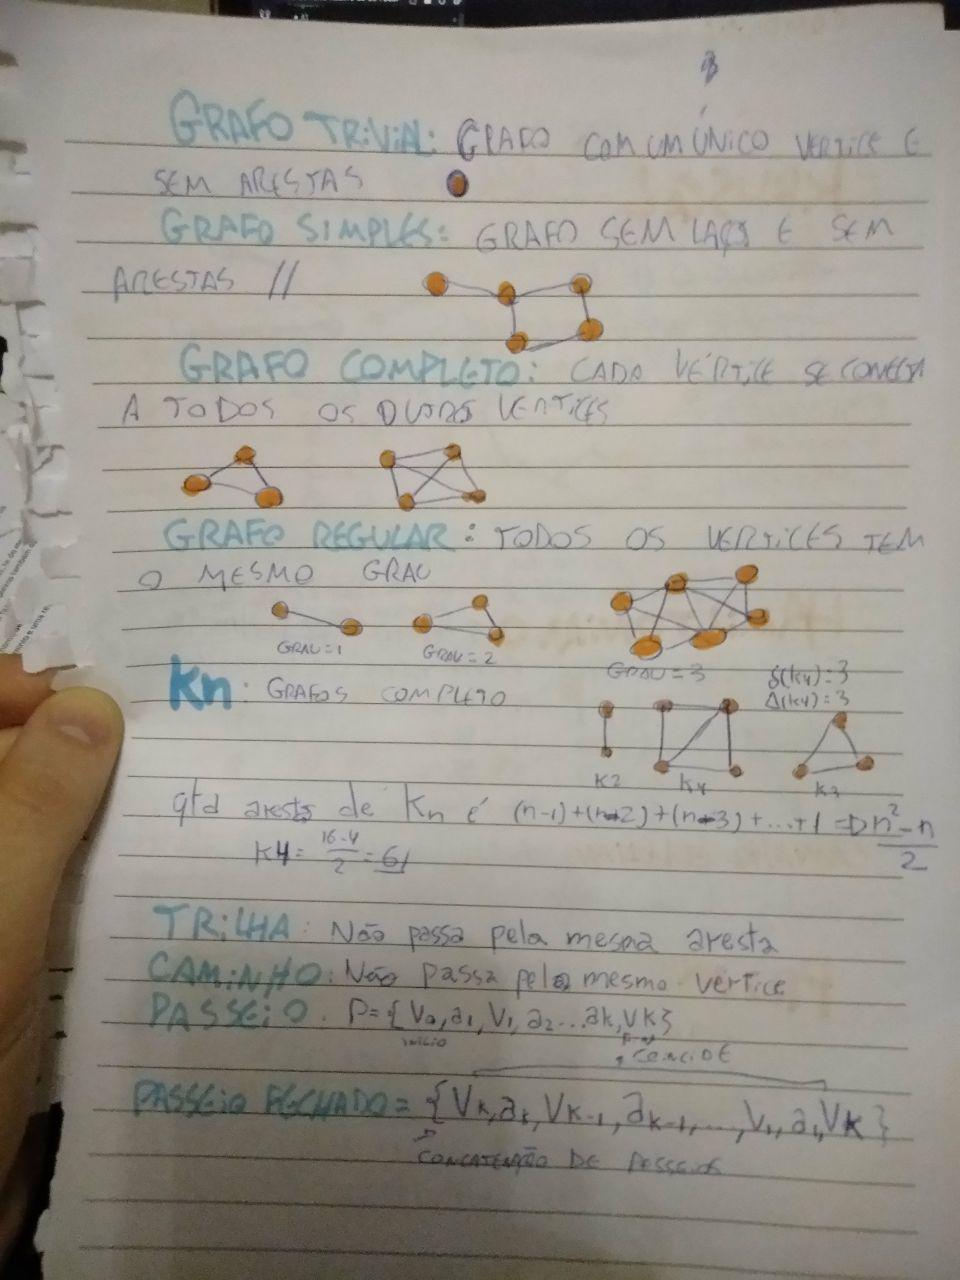 GRAFO TRIVIAL: GRAFO COM UM ÚNICO VERTICE E
SEM ARESTAS
GRAFO SIMPLES: GRAFO SEM LAÇOS E SEM
ARESTAS //
GRAFO COMPLETO: CADA VÉRTICE SE CONECTA
A TODOS OS OUTROS VERTICES
GRAFO REGULAR: TODOS OS VERTICES TEM
O MESMO GRAU
GRAU=1
GRAU=2
GRAU=3
Kn: GRAFOS COMPLETO
δ(K4)=3
Δ(K4)=3
K2
K4
K3
qtd arests de Kn é (n-1)+(n-2)+(n-3)+...+1 => n²-n
2
K4= 16-4
2 = 6
TRILHA: Não passa pela mesma aresta
CAMINHO: Não passa pelo mesmo vértice
PASSEIO. P={V0,a1,V1,a2...ak,Vk}
INÍCIO
COINCIDE
PASSEIO FECHADO = {Vk,ak,Vk-1,ak-1,...,V1,a1,Vk}
CONCATENAÇÃO DE PASSEIOS